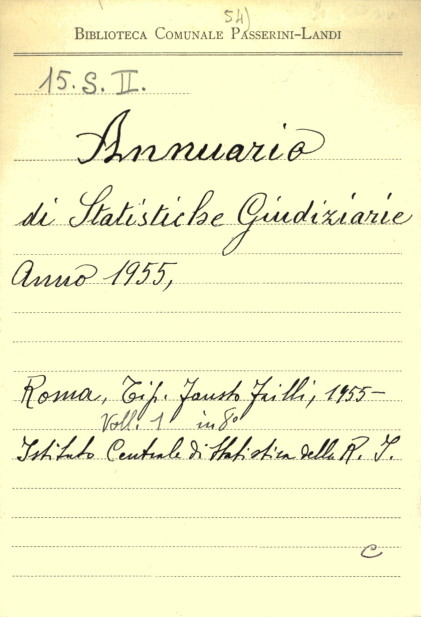 54)
BIBLIOTECA COMUNALE PASSERINI-LANDI
15. S. II.
Annuario
di Statistiche Giudiziarie
Anno 1955,
Roma, Tip. Fausto Failli, 1955-
Voll. 1 in 8º
Istituto Centrale di Statistica della R. I.
C